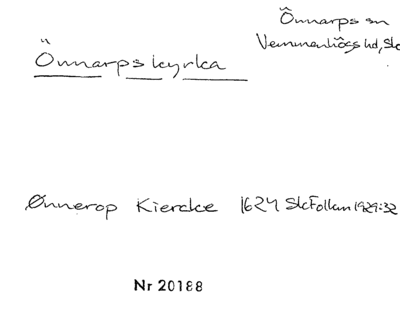 Önnarps sn
Vemmenhögs hd, Sk
Önnarps kyrka
Ønnerop Kiercke 1624 SkFollan 1929:32
Nr 20188